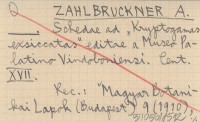 ZAHLBRUCKNER A.
____. Schedae ad „Kryptogamas
exsiccatas" editae a Museo Pa-
latino Vindoboniensi. Cent.
XVII.
Rec.: "Magyar Botani-
kai Lapok (Budapest) 9 (1910),